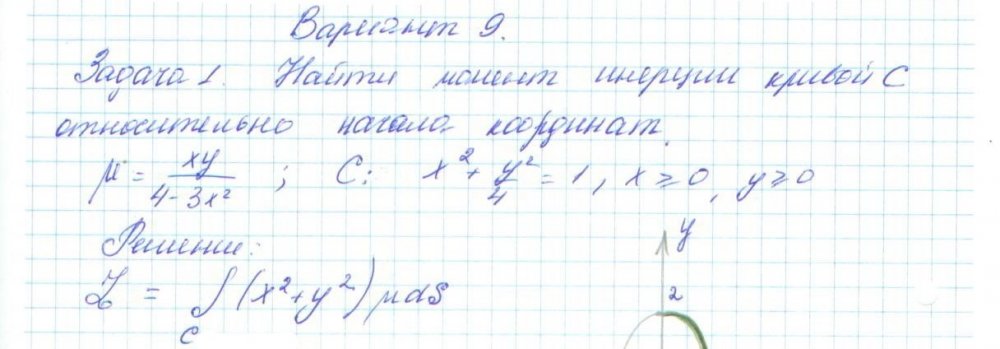 Вариант 9.
Задача 1. Найти момент инерции кривой С
относительно начала координат.
μ = xy / (4 - 3x²) ; С: x² + y²/4 = 1, x ≥ 0, y ≥ 0
Решение:
y
I = ∫_C (x² + y²) μ dS
2